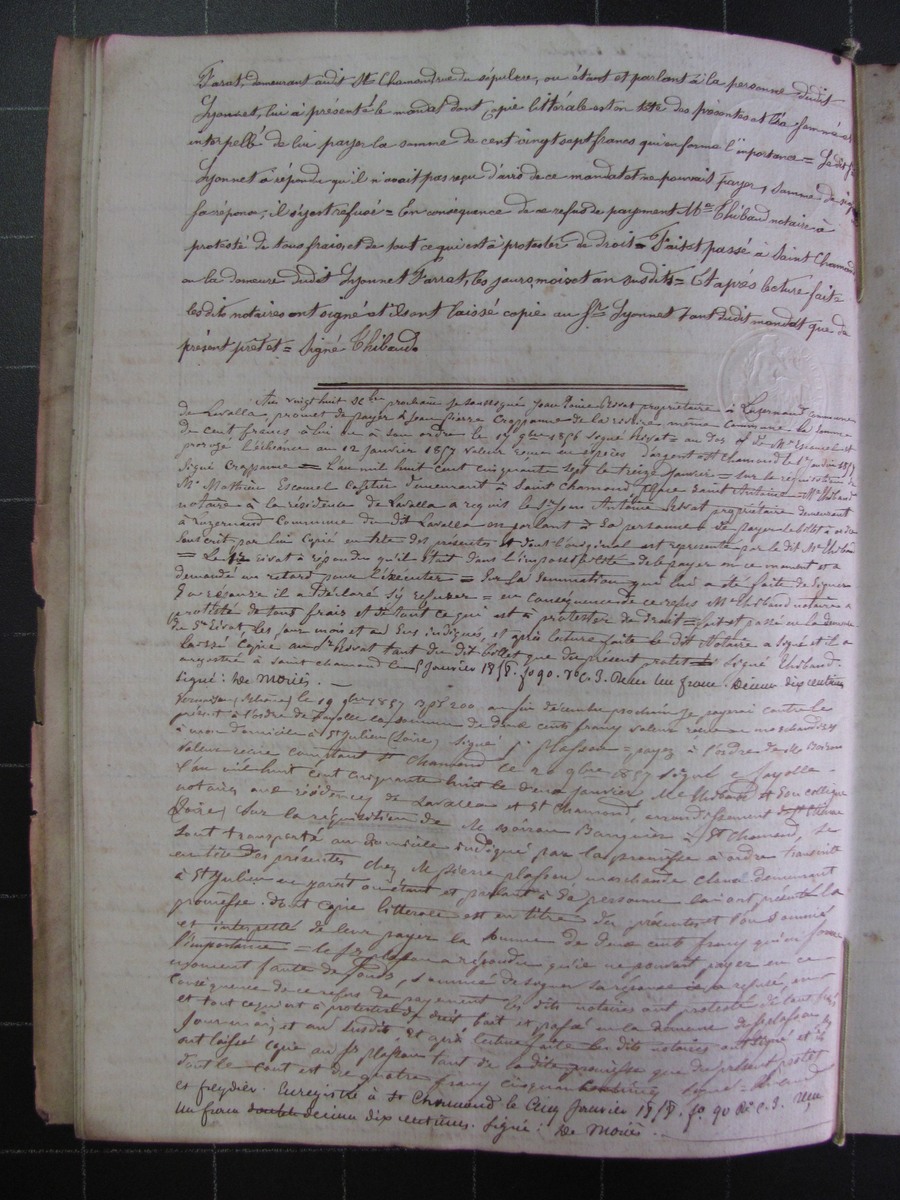 Farrat, demeurant audit St Chamond rue du sépulcre, ou étant et parlant à la personne dudit
Lyonnet, lui à présenté le mandat dont copie littérale est en tête des présentes et l'a sommé et
interpellé de lui payer la somme de cent vingt sept francs qui en forme l'importance = Ledit Sr
Lyonnet à répondu qu'il n'avait pas reçu d'avis de ce mandat et ne pouvait payer, sommé de signer
sa réponse, il s'y est refusé = En conséquence de ce refus de payement Me Thibaud notaire à
protesté de tous frais et de tout ce qui est à protester de droit = Fait et passé à Saint Chamond
en la demeure dudit Lyonnet Farrat, les jour mois et an susdits = Et après lecture faite
les dits notaires ont signé et ils ont laissé copie au Sr Lyonnet tant dudit mandat que du
présent protet = Signé Thibaud.
Au vingt huit Xbre prochain je soussigné Jean propriétaire à Luzernaud commune
de Lavalla, promet de payer à Jean Pierre Crapanne de la même commune la somme
de cent francs à lui ou à son ordre le 1856 Signé = au dos de Mr Escomel et
prorogé l'échéance au 12 janvier 1857 valeur reçue en espèces d'argent St Chamond le
Signé = L'an mil huit cent cinquante sept le treize Janvier = sur la réquisition de
Mr Mathieu Escomel Cafetier demeurant à Saint Chamond Place Saint Antoine = Me Thibaud
notaire à la résidence de Lavalla a requis le Sr Jean Antoine propriétaire demeurant
à Luzernaud Commune du dit Lavalla en parlant à sa personne de payer le billet à ordre
souscrit par lui Copié en tête des présentes et dont l'original est représenté par le dit Me Thibaud
= Le à répondu qu'il était dans l'impossibilité de le payer en ce moment et a
demandé un retard pour l'exécuter = Sur la sommation qui lui a été faite de signer
sa réponse il a déclaré s'y refuser = en conséquence de ce refus Me Thibaud notaire a
protesté de tout frais et de tout ce qui est à protester de droit = fait et passé en la demeure
du Sr les jour mois et an sus indiqués, et après lecture faite le dit Notaire a signé et il a
laissé copie au Sr tant du dit billet que du présent protet Signé Thibaud.
enregistré à Saint chamond le 5 Janvier 1858. fo 90. Vo C. 3. Reçu un franc. Décime dix centimes
Signé : De Moriès. —
le 19 9bre 1857 200 au fin décembre prochain je payerai contre le
présent à l'ordre de Fayolle la somme de deux cents francs valeur reçue en marchandises
à mon domicile à St Julien (Loire) signé P. Plasson = payez à l'ordre de
valeur reçue comptant St Chamond ce 20 9bre 1857 Signé Fayolle.
L'an mil huit cent cinquante huit le deux janvier Me Thibaud et son collègue
notaires aux résidences de Lavalla et St Chamond, arrondissement de St Etienne
(Loire) sur la réquisition de Mr Banquier à St Chamond, se
sont transporté au domicile indiqué par la promesse à ordre transmise
en tête des présentes chez Mr Pierre Plasson marchand demeurant
à St Julien en Jarêt où étant et parlant à sa personne lui ont présenté la
promesse dont copie littérale est en tête des présentes et l'on sommé
et interpellé de leur payer la somme de deux cents francs qu'en forme
l'importance = le Sr Plasson a répondu qu'il ne pouvait payer en ce
moment faute de fonds, sommé de signer sa réponse il a refusé, en
Conséquence de ce refus de payement les dits notaires ont protesté de tout frais
et tout ce qui est à protester de droit fait et passé en la demeure du Sr Plasson les
Jour mois et an susdits et après lecture faite les dits notaires ont signé et ils
ont laissé copie au Sr Plasson tant de la dite promesse que du présent protet
dont le cout est de quatre francs cinquante Signé = Thibaud
et Freydier. Enregistré à St Chamond le Cinq Janvier 1858. fo 90 Vo C. 3. Reçu
un franc décime dix centimes. Signé : De Moriès.